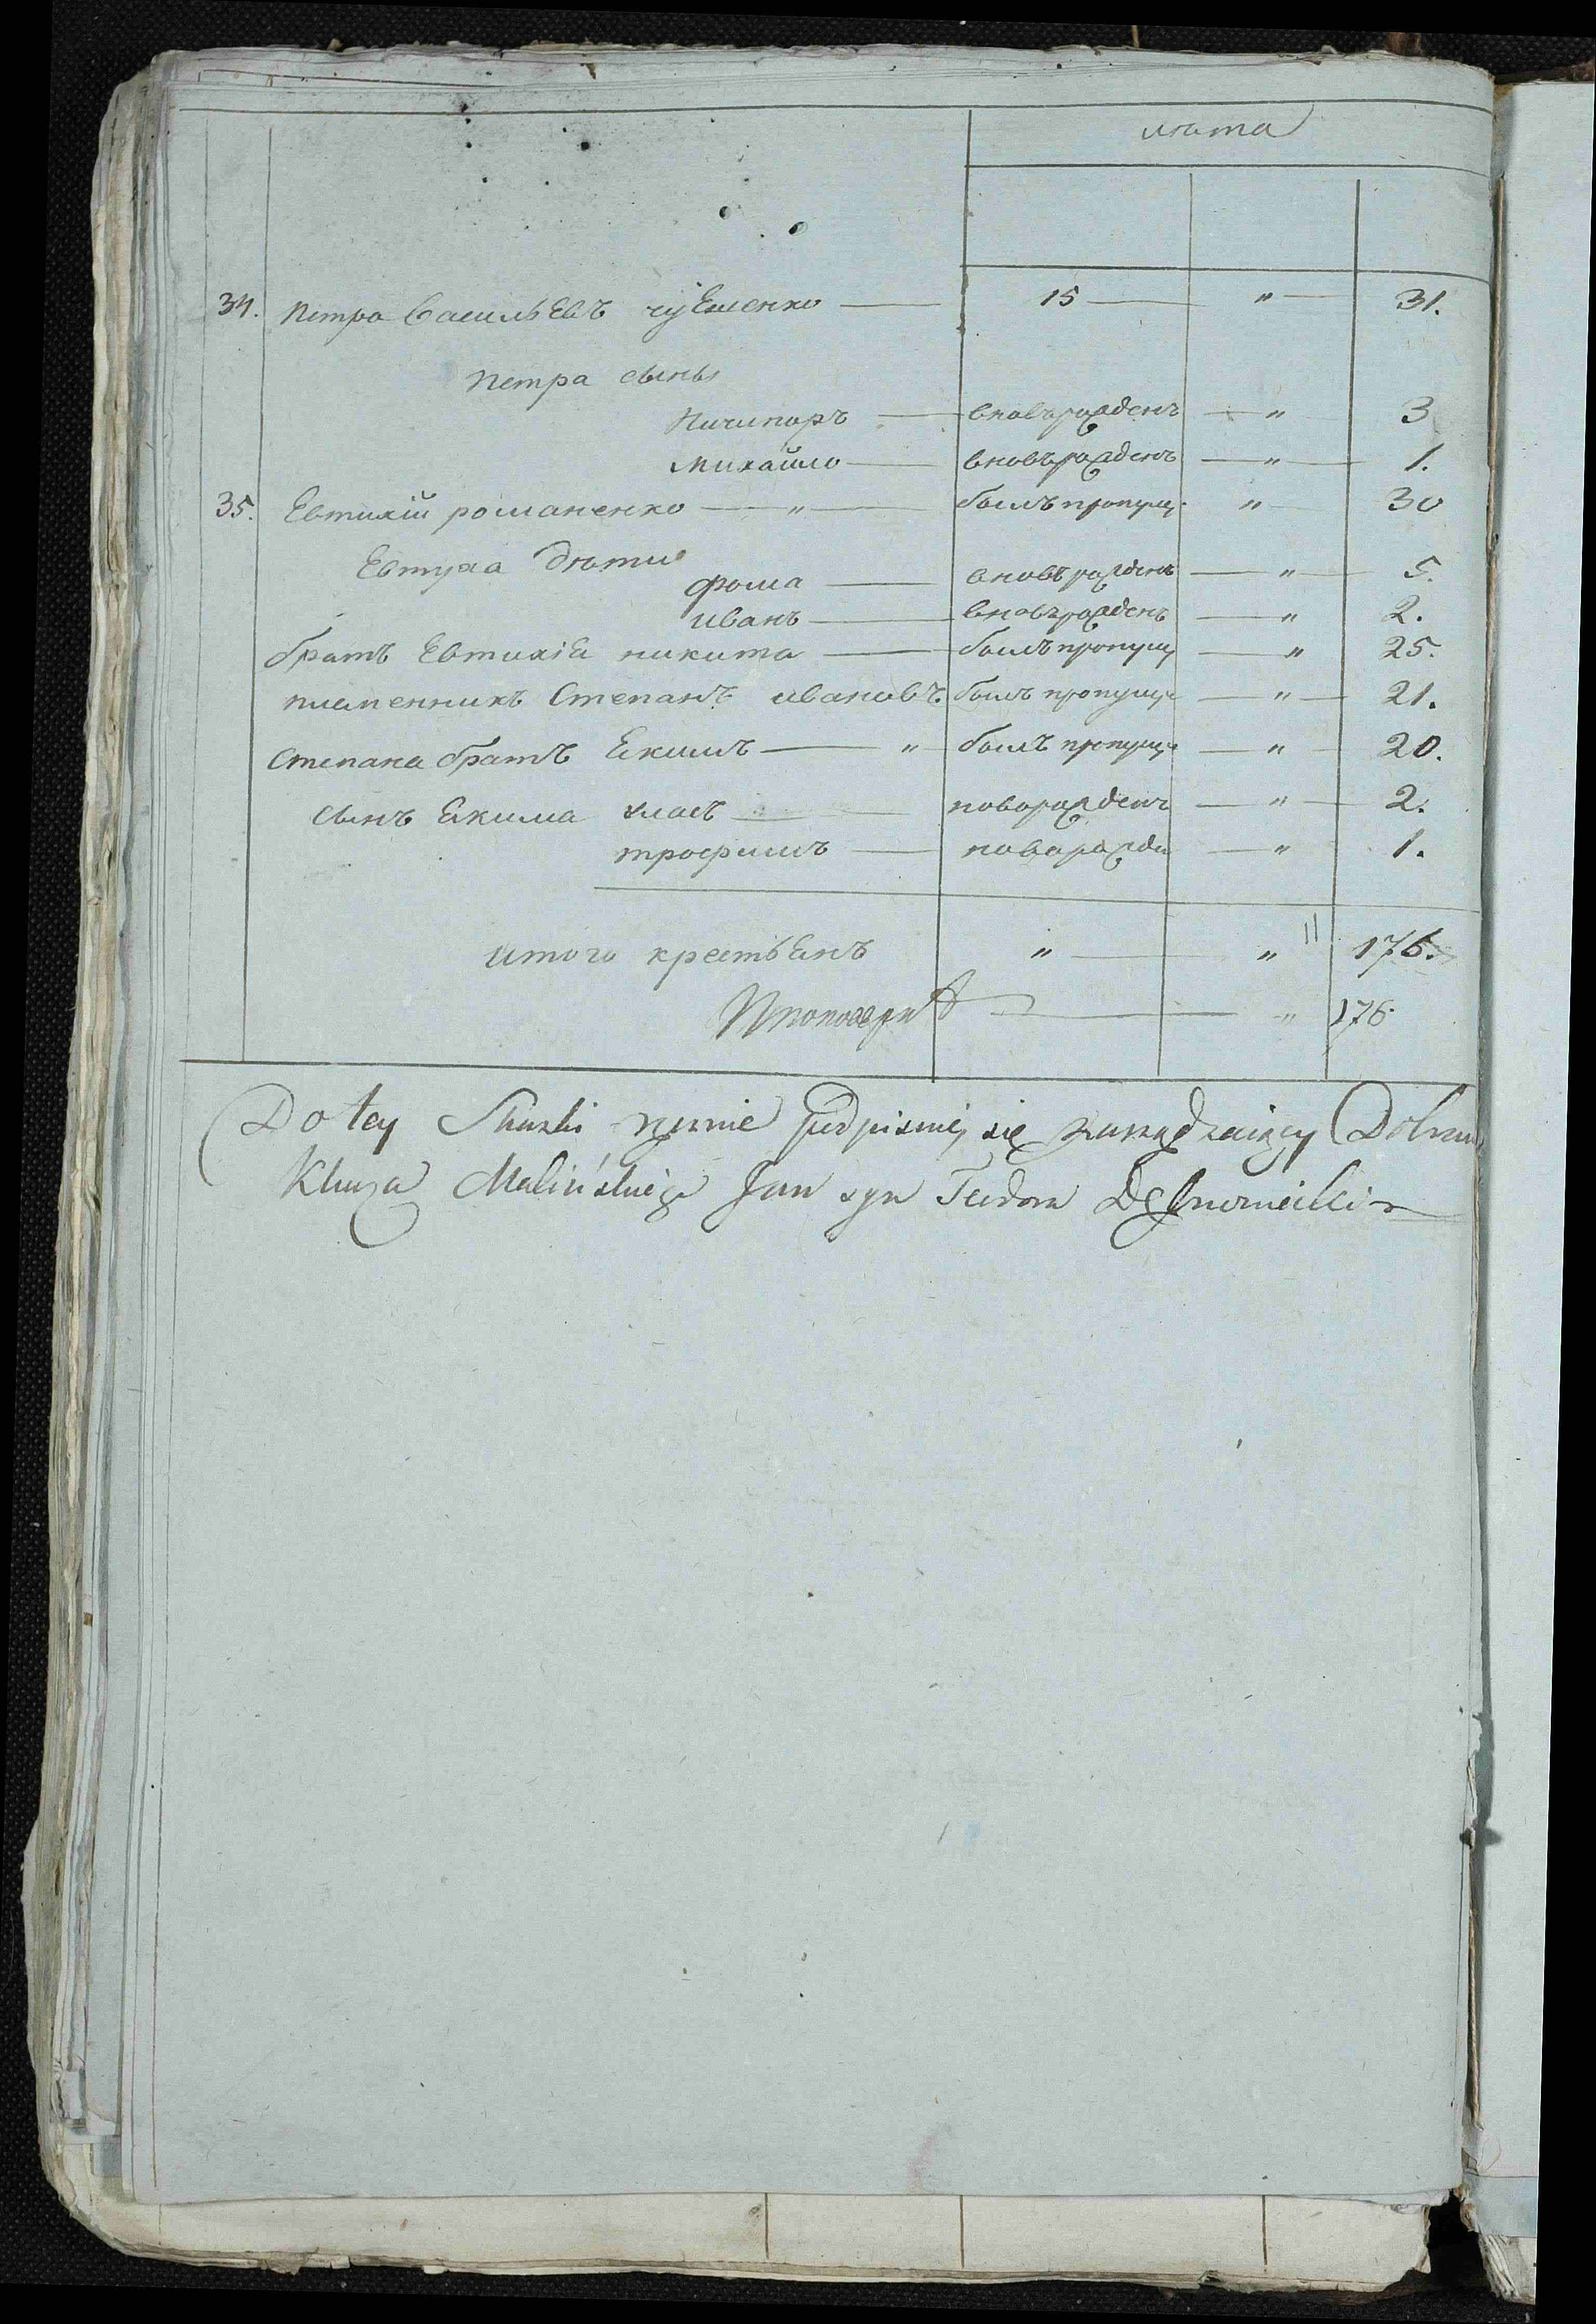 лѣта
34. петро василь Евъ чуЕшенко — 15 — " — 31.
петра сыны
Ничипоръ — вновърожденъ — " 3
михайло — вновърожденъ — " — 1.
35. Евтихій романенко — " — былъ пропущ. " — 30
Евтуха дѣти
фома — вновърожденъ — " — 5.
иванъ — вновърожденъ — " — 2.
братъ Евтихіа никита — былъ пропущ — " 25.
племенникъ Степанъ ивановъ былъ пропуще — " — 21.
степана братъ Екимъ — " — былъ пропуще — " — 20.
сынъ Екима власъ — новорожденъ — " — 2.
трофимъ — новорожде — " 1.
итого крестьЕнъ " — " 176.
— " 176
Do tey Skazki ręcznie podpisuię się zarządzaiący Dobram
Xiąza Malińskiego Jan syn Teodora